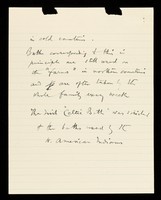 in cold countries.
Baths corresponding to this in
principle are still used in
the "farms" in northern countries
and are often taken by the
whole family every week
The dried "Celtic Bath" was similar
to the baths used by the
N. American Indians